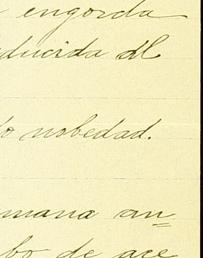 engorda
ducida al
nobedad.
mana an=
bo de ace